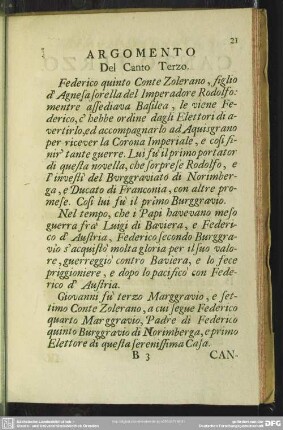 21
ARGOMENTO
Del Canto Terzo.
Federico quinto Conte Zolerano, figlio
d' Agnesa sorella del Imperadore Rodolfo:
mentre assediava Basilea, le viene Fe-
derico, c' hebbe ordine dagli Elettori di a-
vertirlo, ed accompagnarlo ad Aquisgrano
per ricever la Corona Imperiale, e così fi-
nir' tante guerre. Lui fù il primo portator
di questa novella, che sorprese Rodolfo, e
l' investì del Burggraviato di Norimber-
ga, e Ducato di Franconia, con altre pro-
mese. Così lui fù il primo Burggravio.
Nel tempo, che i Papi havevano meso
guerra frà Luigi di Baviera, e Federi-
co d' Austria, Federico secondo Burggra-
vio s' acquistò molta gloria per il suo valo-
re, guerreggiò contro Baviera, e lo fece
priggioniere, e dopo lo pacificò con Fede-
rico d' Austria.
Giovanni fù terzo Marggravio, e set-
timo Conte Zolerano, a cui segue Federico
quarto Marggravio, Padre di Federico
quinto Burggravio di Norimberga, e primo
Elettore di questa serenissima Casa.
B 3 CAN-